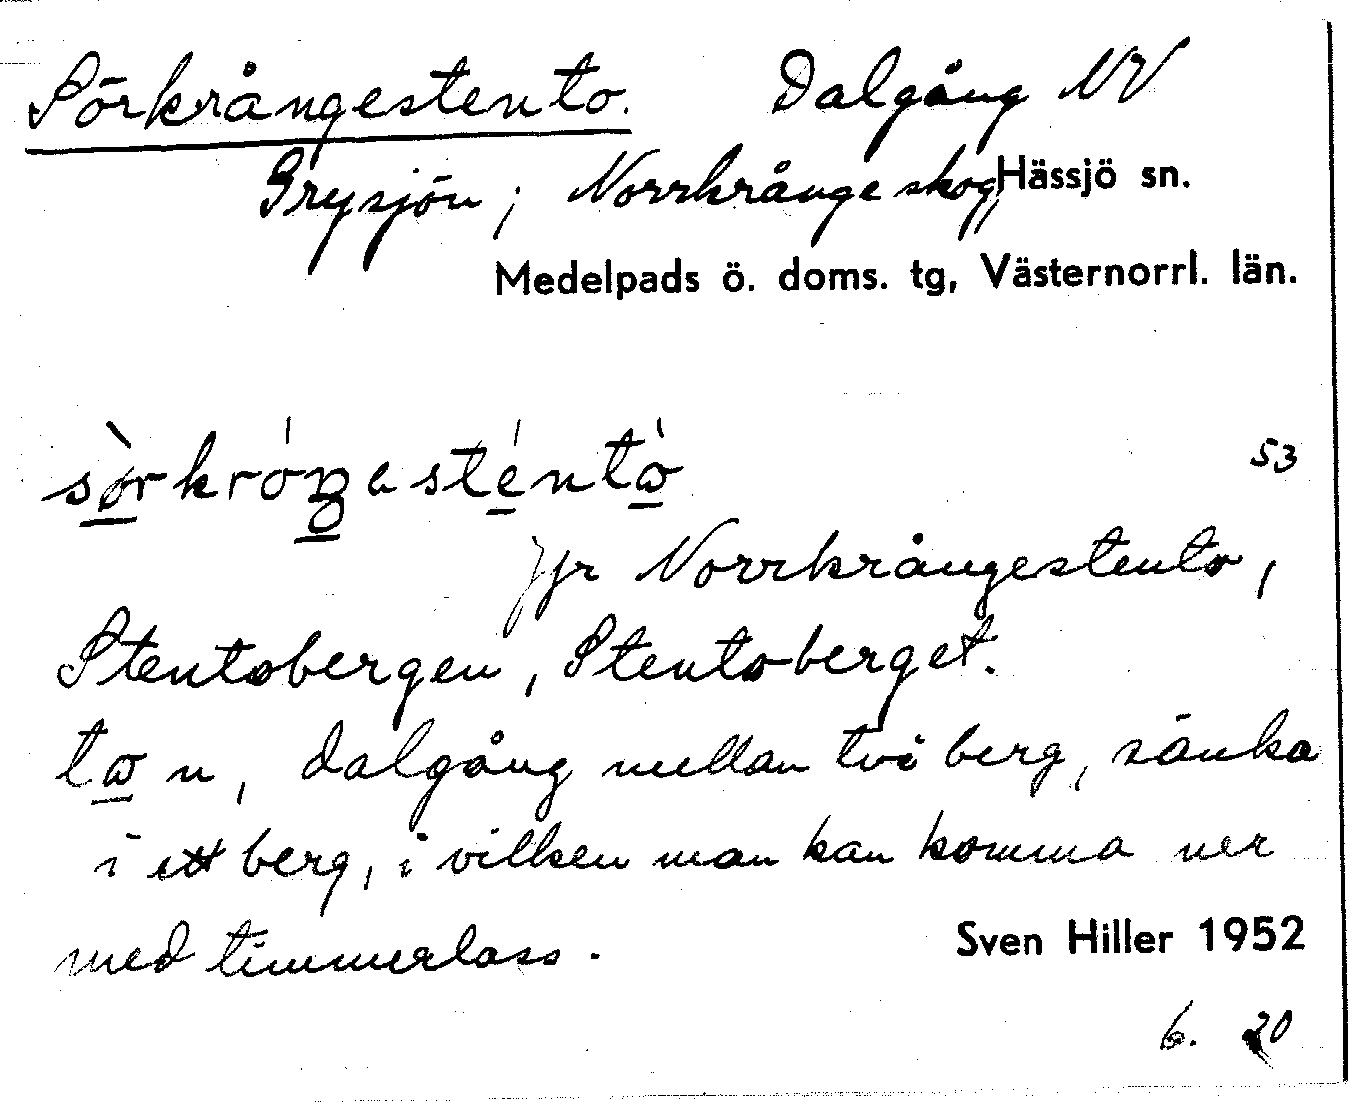 Sörkrångestento. Dalgång NV
Grysjön; Norrkrånge skog, Hässjö sn.
Medelpads ö. doms. tg, Västernorrl. län.
53
Jfr Norrkrångestento,
Stentobergen, Stentoberget.
to n, dalgång mellan två berg, sänka
i ett berg, i vilken man kan komma ner
med timmerlass.
Sven Hiller 1952
6. 20